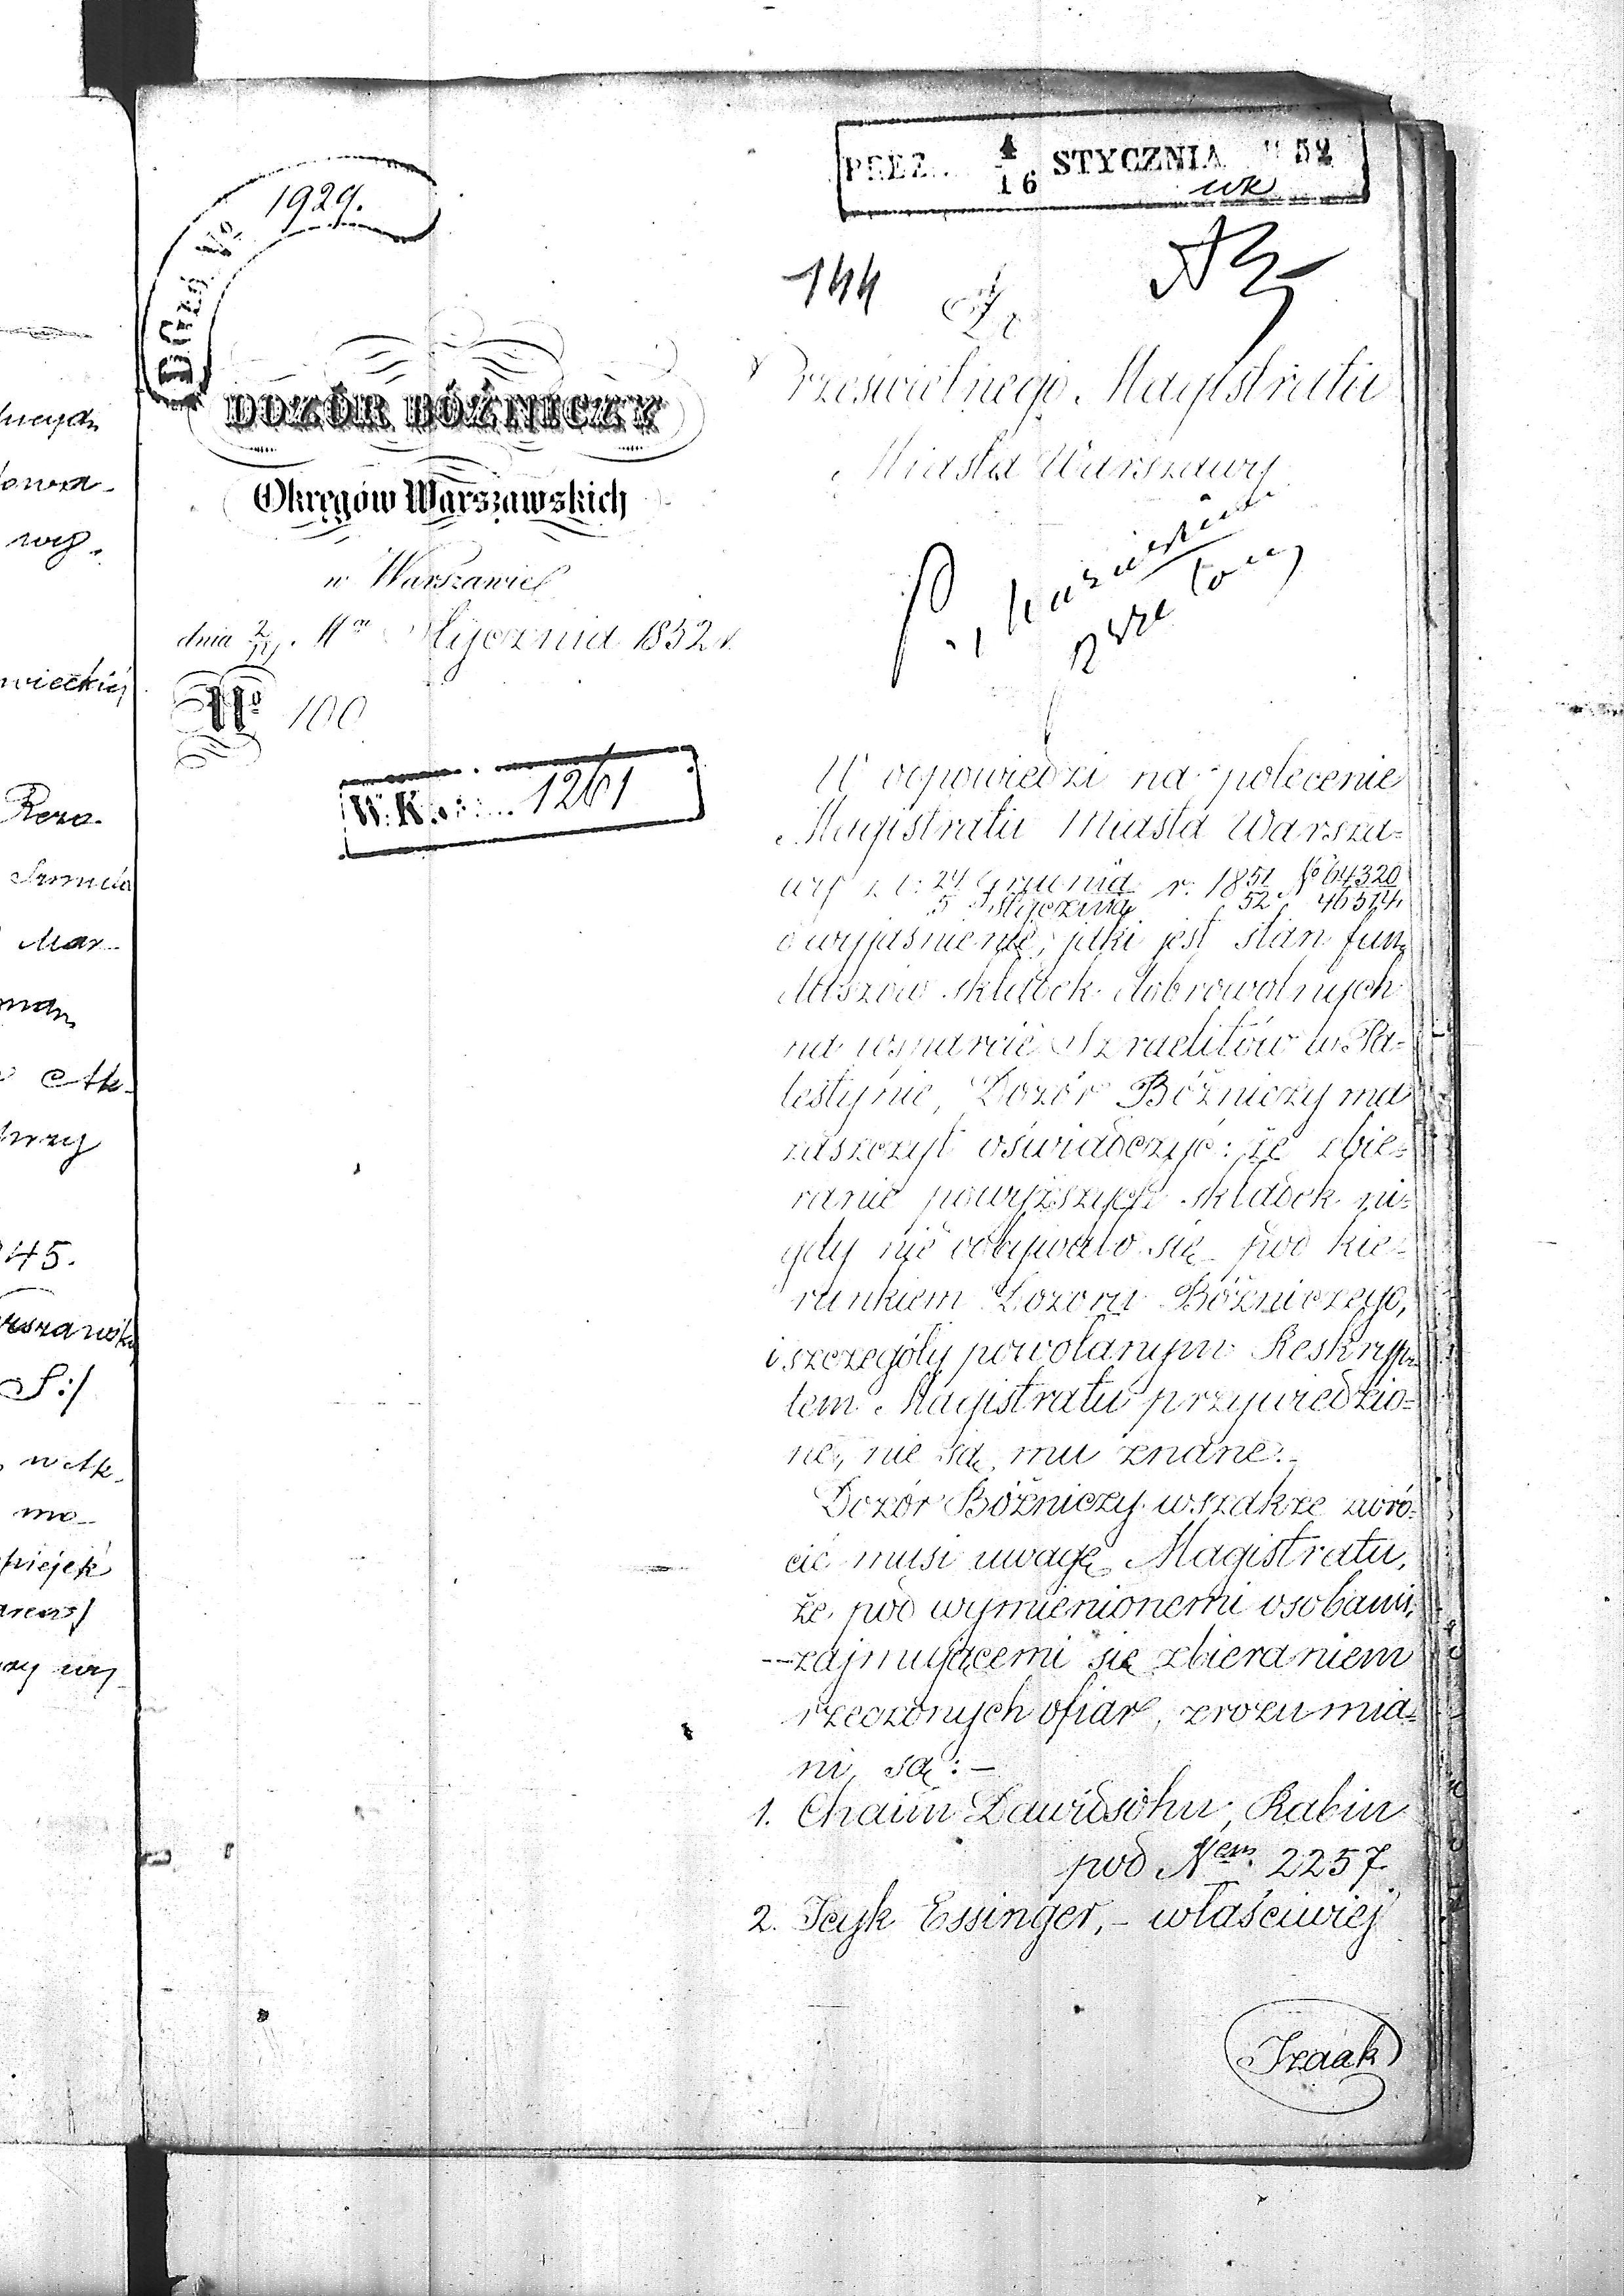 PREZ. 4/16 STYCZNIA 52
wk
Dz. No. 1929.
144
Do
Prześwietnego Magistratu
Miasta Warszawy
DOZÓR BÓŹNICZY
Okręgów Warszawskich
w Warszawie
dnia 2/14 Stycznia 1852 r.
No 100
W. K. 1261
W odpowiedzi na polecenie
Magistratu Miasta Warsza=
wy z d: 24 Grudnia / 5 Stycznia r. 1851/52 No 64320/46514
o wyjaśnienie, jaki jest stan fun=
duszów składek dobrowolnych
na wsparcie Izraelitów w Pa=
lestynie, Dozór Bóźniczy ma
zaszczyt oświadczyć: że zbie=
ranie powyższych składek ni=
gdy nie odbywało się pod kie=
runkiem Dozoru Bóźniczego,
i szczegóły powołanym Reskryp=
tem Magistratu przywiedzio=
ne, nie są mu znane.
Dozór Bóźniczy wszakże zwró=
cić musi uwagę Magistratu,
że pod wymienionemi osobami,
zajmującemi się zbieraniem
rzeczonych ofiar, zrozumia=
ni są: —
1. Chaim Dawidsohn, Rabin
pod Nem. 2257
2. Icyk Essinger, – właściwiej
Izaak
hucych
owa-
wy.
wieckiej
Rezo-
Szmula
Mar-
45.
rszawsk
S:/
w Ak-
mo-
piejek